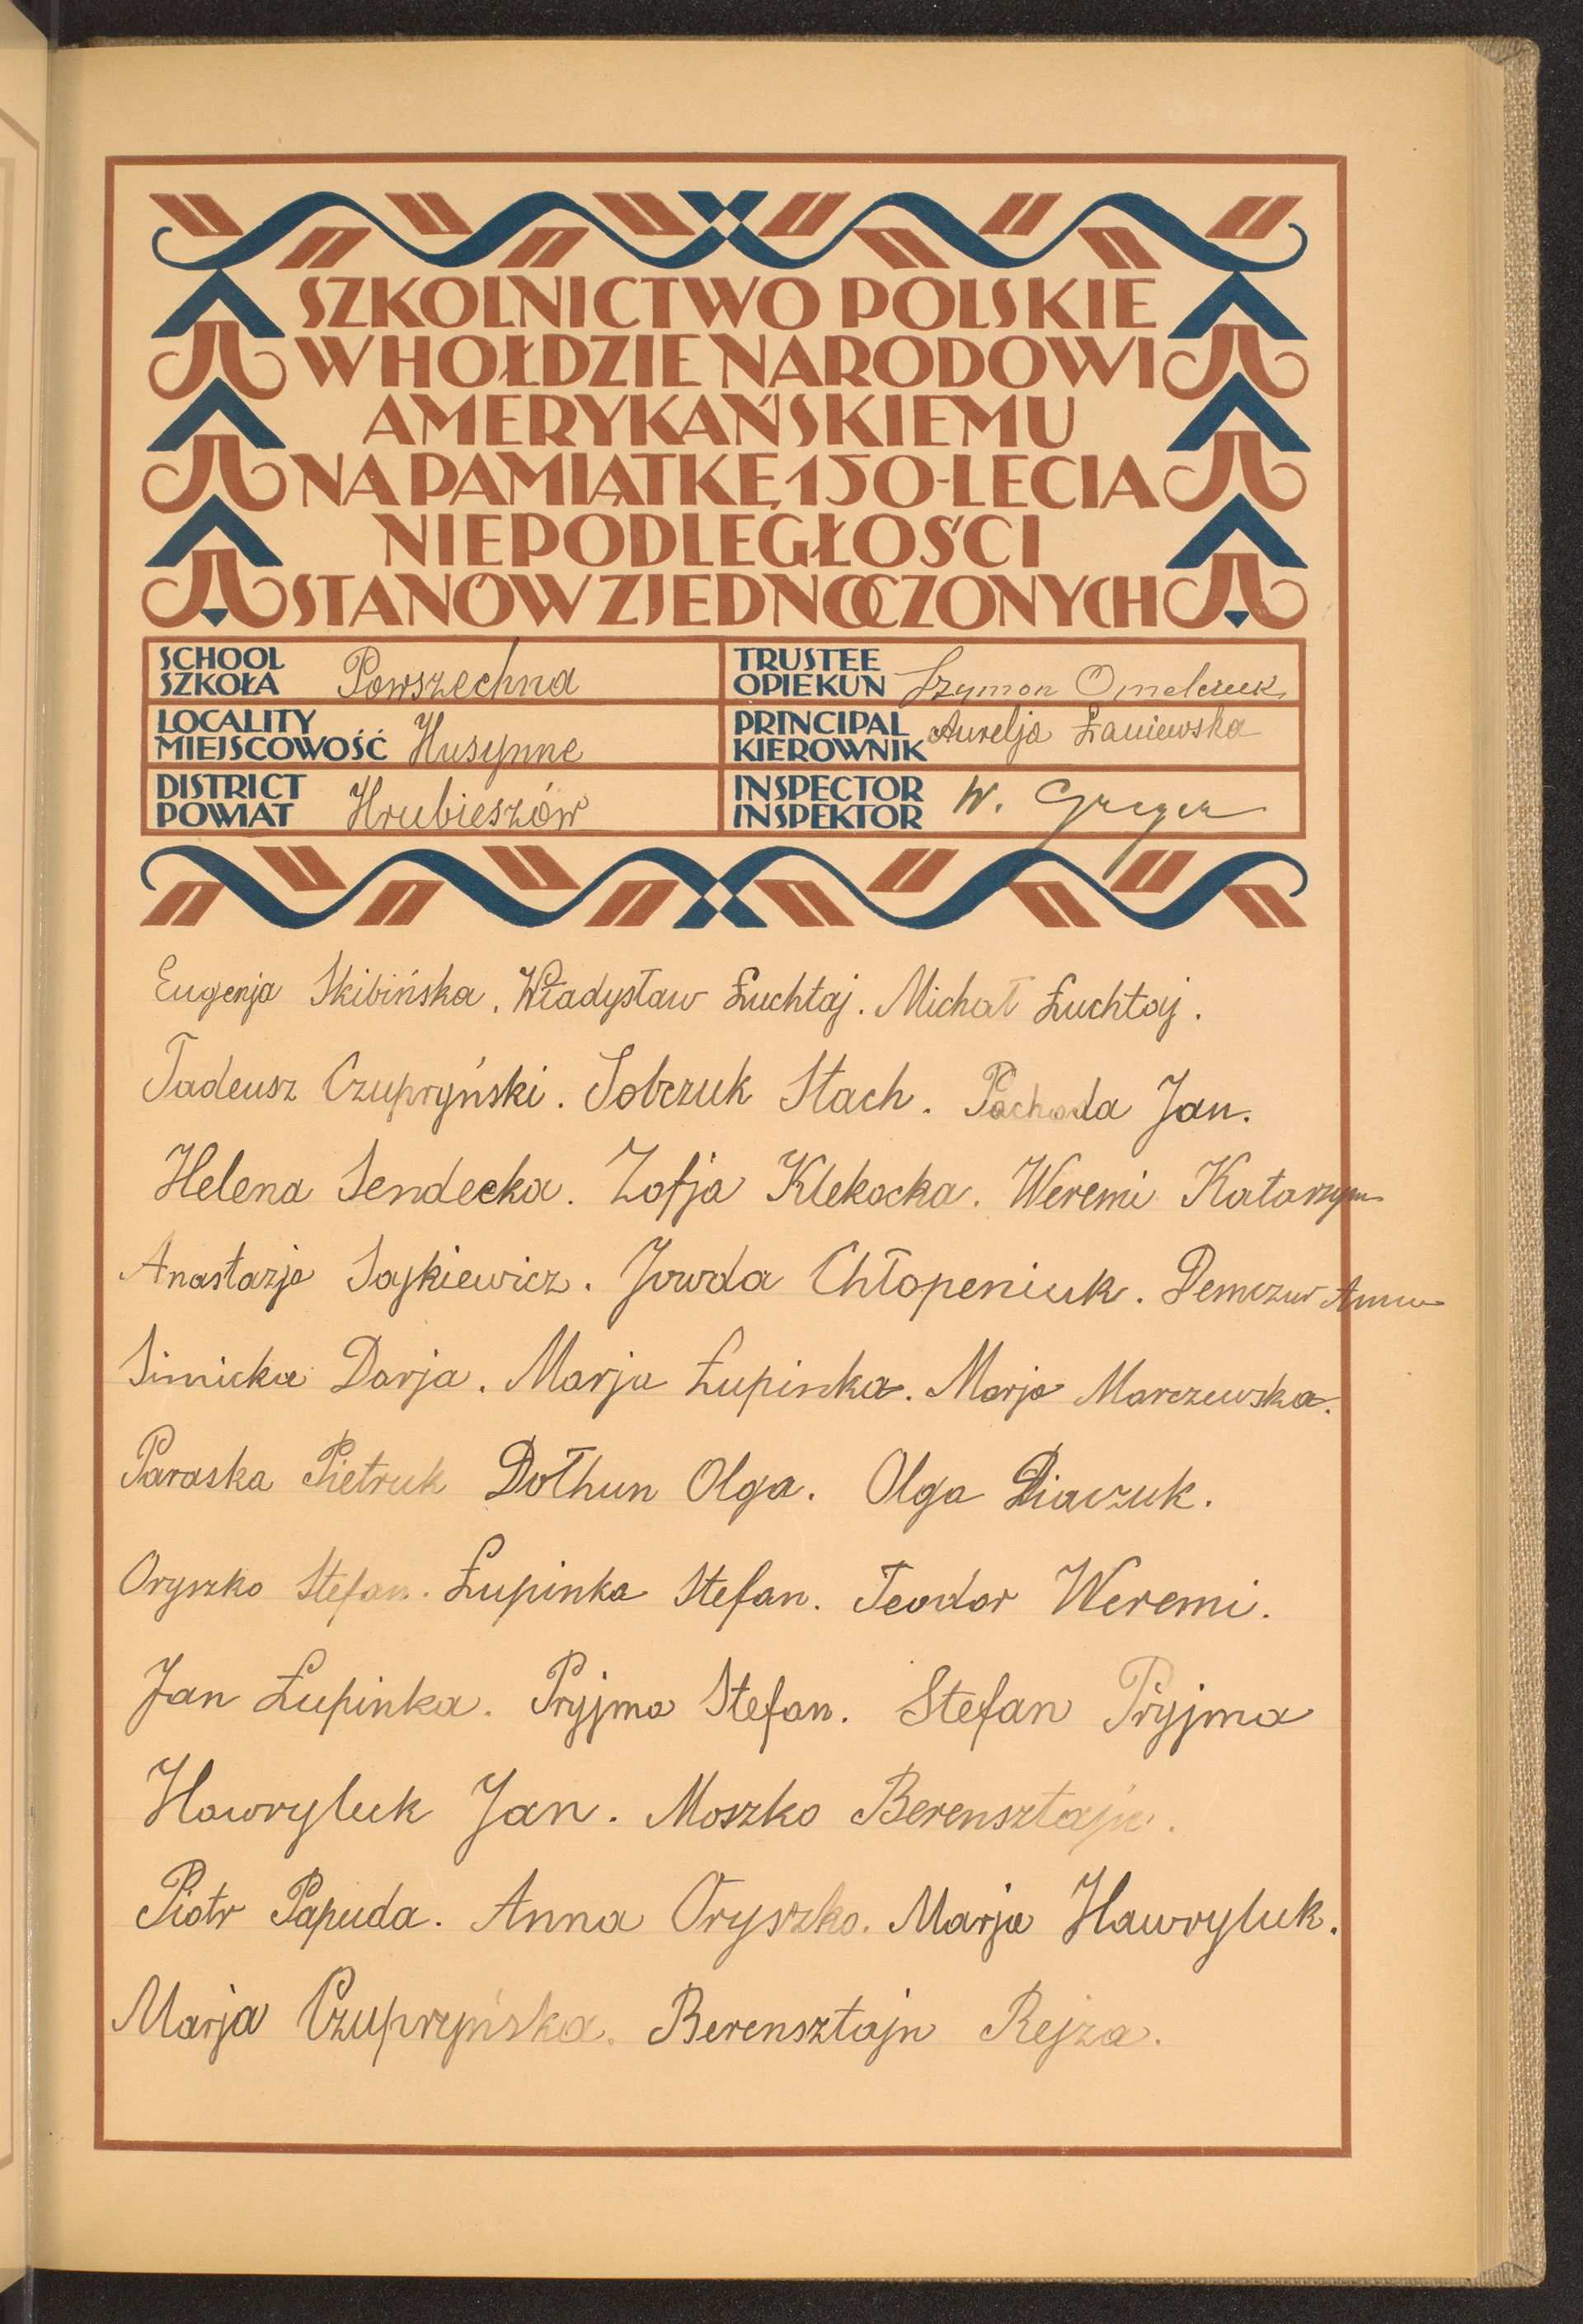 SZKOLNICTWO POLSKIE
W HOŁDZIE NARODOWI
AMERYKAŃSKIEMU
NA PAMIĄTKĘ 150-LECIA
NIEPODLEGŁOŚCI
STANÓW ZJEDNOCZONYCH
SCHOOL
SZKOŁA Powszechna
TRUSTEE
OPIEKUN Szymon Omelczuk
LOCALITY
MIEJSCOWOŚĆ Husynne
PRINCIPAL
KIEROWNIK Aurelja Łaniewska
DISTRICT
POWIAT Hrubieszów
INSPECTOR
INSPEKTOR W.
Eugenja Skibińska. Władysław Łuchtaj. Michał Łuchtaj.
Tadeusz Czupryński. Sobczuk Stach. Pochoda Jan.
Helena Sendecka. Zofja Klekocka. Weremi Katarzyna
Anastazja Sajkiewicz. Jowda Chłopeniuk. Demczur Anna
Simicka Darja. Marja Łupinka. Marja Marczewska.
Paraska Pietruk Dołhun Olga. Olga Diaczuk.
Oryszko Stefan. Łupinka Stefan. Teodor Weremi.
Jan Łupinka. Pryjma Stefan. Stefan Pryjma
Hawryluk Jan. Moszko Berensztajn.
Piotr Papuda. Anna Oryszko. Marja Hawryluk.
Marja Czupryńska. Berensztajn Rejza.